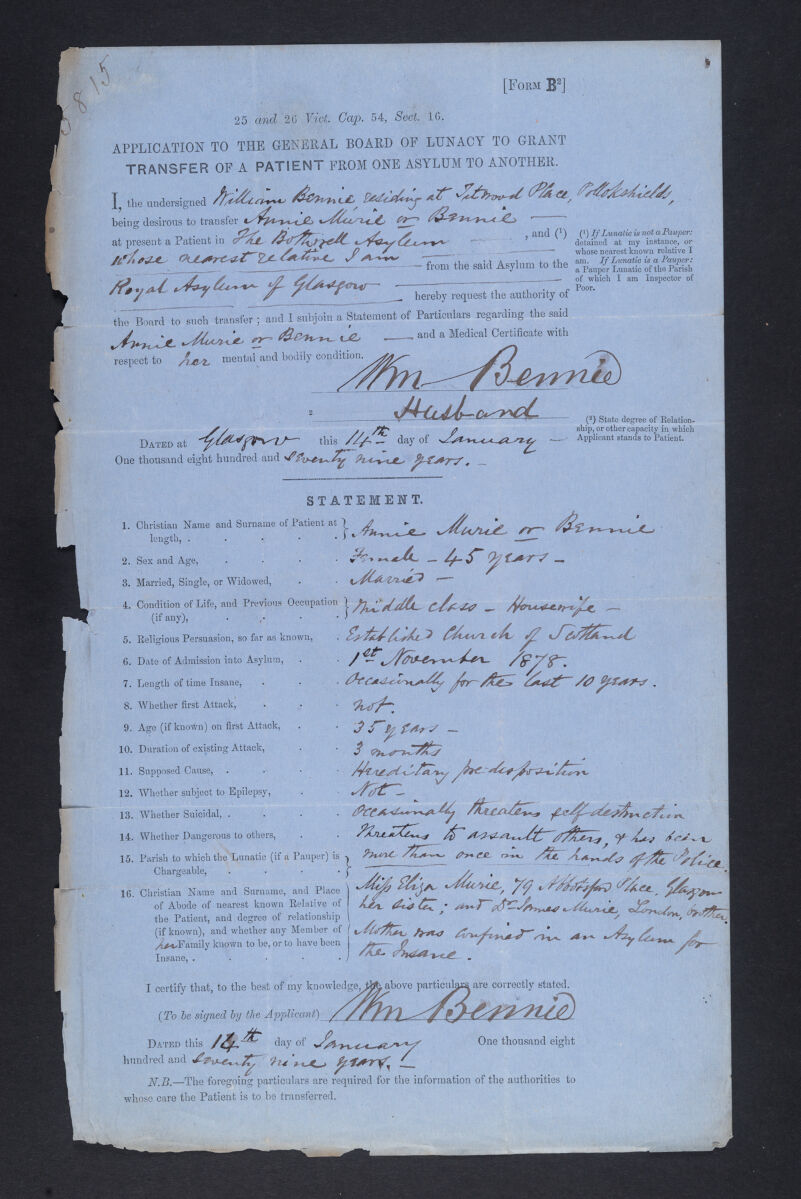 5815
[FORM B²]
25 and 26 Vict. Cap. 54, Sect. 16.
APPLICATION TO THE GENERAL BOARD OF LUNACY TO GRANT
TRANSFER OF A PATIENT FROM ONE ASYLUM TO ANOTHER.
I, the undersigned William Bennie residing at Titwood Place, Pollokshields,
being desirous to transfer Annie Murie or Bennie —
at present a Patient in The Bothwell Asylum , and (¹)
whose nearest relative I am — from the said Asylum to the
Royal Asylum of Glasgow — hereby request the authority of
the Board to such transfer ; and I subjoin a Statement of Particulars regarding the said
Annie Murie or Bennie — and a Medical Certificate with
respect to her mental and bodily condition.
(¹) If Lunatic is not a Pauper:
detained at my instance, or
whose nearest known relative I
am. If Lunatic is a Pauper:
a Pauper Lunatic of the Parish
of which I am Inspector of
Poor.
Wm Bennie
² Husband
(²) State degree of Relation-
ship, or other capacity in which
Applicant stands to Patient.
DATED at Glasgow this 14th day of January —
One thousand eight hundred and seventy nine years. —
STATEMENT.
1. Christian Name and Surname of Patient at
length, . Annie Murie or Bennie
2. Sex and Age, Female — 45 years —
3. Married, Single, or Widowed, Married —
4. Condition of Life, and Previous Occupation
(if any), Middle class — Housewife —
5. Religious Persuasion, so far as known, Established Church of Scotland
6. Date of Admission into Asylum, 1st November 1878.
7. Length of time Insane, Occasionally for the last 10 years.
8. Whether first Attack, not.
9. Age (if known) on first Attack, 35 years —
10. Duration of existing Attack, 3 months
11. Supposed Cause, Hereditary pre-disposition
12. Whether subject to Epilepsy, Not —
13. Whether Suicidal, Occasionally threatens self destruction
14. Whether Dangerous to others, Threatens to assault others, & has been
15. Parish to which the Lunatic (if a Pauper) is more than once in the hands of the Police.
Chargeable,
16. Christian Name and Surname, and Place Miss Eliza Murie, 79 Abbotsford Place, Glasgow
of Abode of nearest known Relative of her sister; and Dr James Murie, London, brother.
the Patient, and degree of relationship
(if known), and whether any Member of Mother was confined in an Asylum for
her Family known to be, or to have been the Insane.
Insane,
I certify that, to the best of my knowledge, the above particulars are correctly stated.
(To be signed by the Applicant) Wm Bennie
DATED this 14th day of January One thousand eight
hundred and seventy nine years. —
N.B.—The foregoing particulars are required for the information of the authorities to
whose care the Patient is to be transferred.